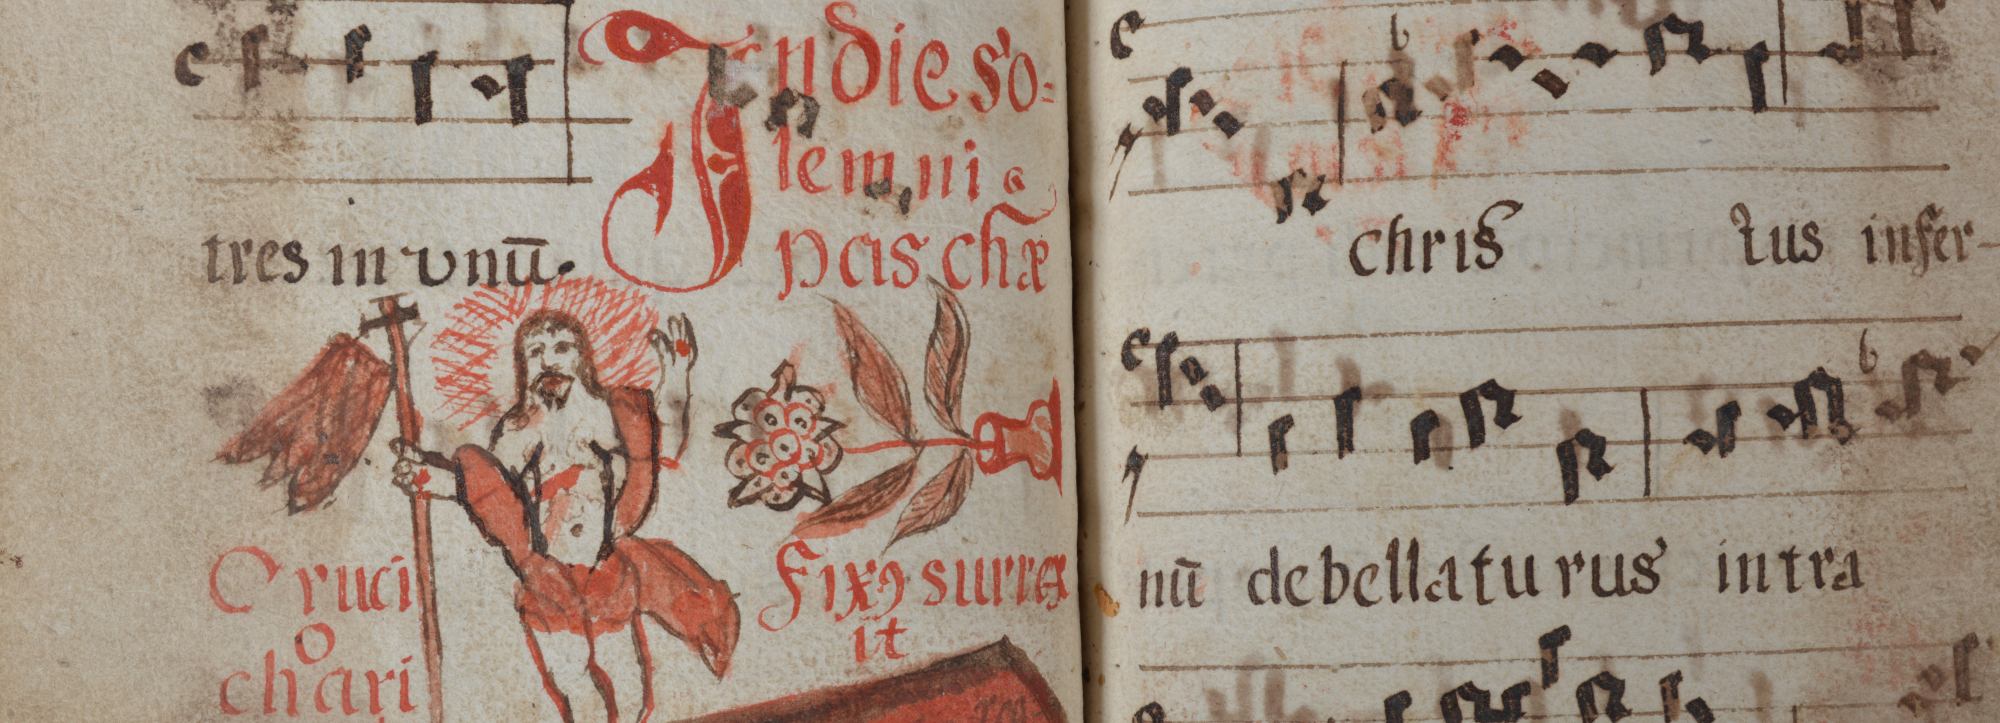 In die so=
lemni
paschæ
tres in vnū.
Cruci Fixꝰ surrex
it
chari
chris tus infer-
nū debellaturus intra